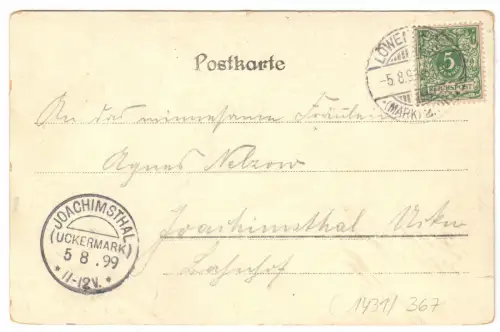 Postkarte
LÖWEN
-5.8.9
(MARK) 2.
5
REICHSPOST
An das minnesame Fräulein
Agnes Nelzow
Joachimsthal Uckm
Bahnhof
JOACHIMSTHAL
(UCKERMARK)
5 8.99
*11-12V.*
(1431/367